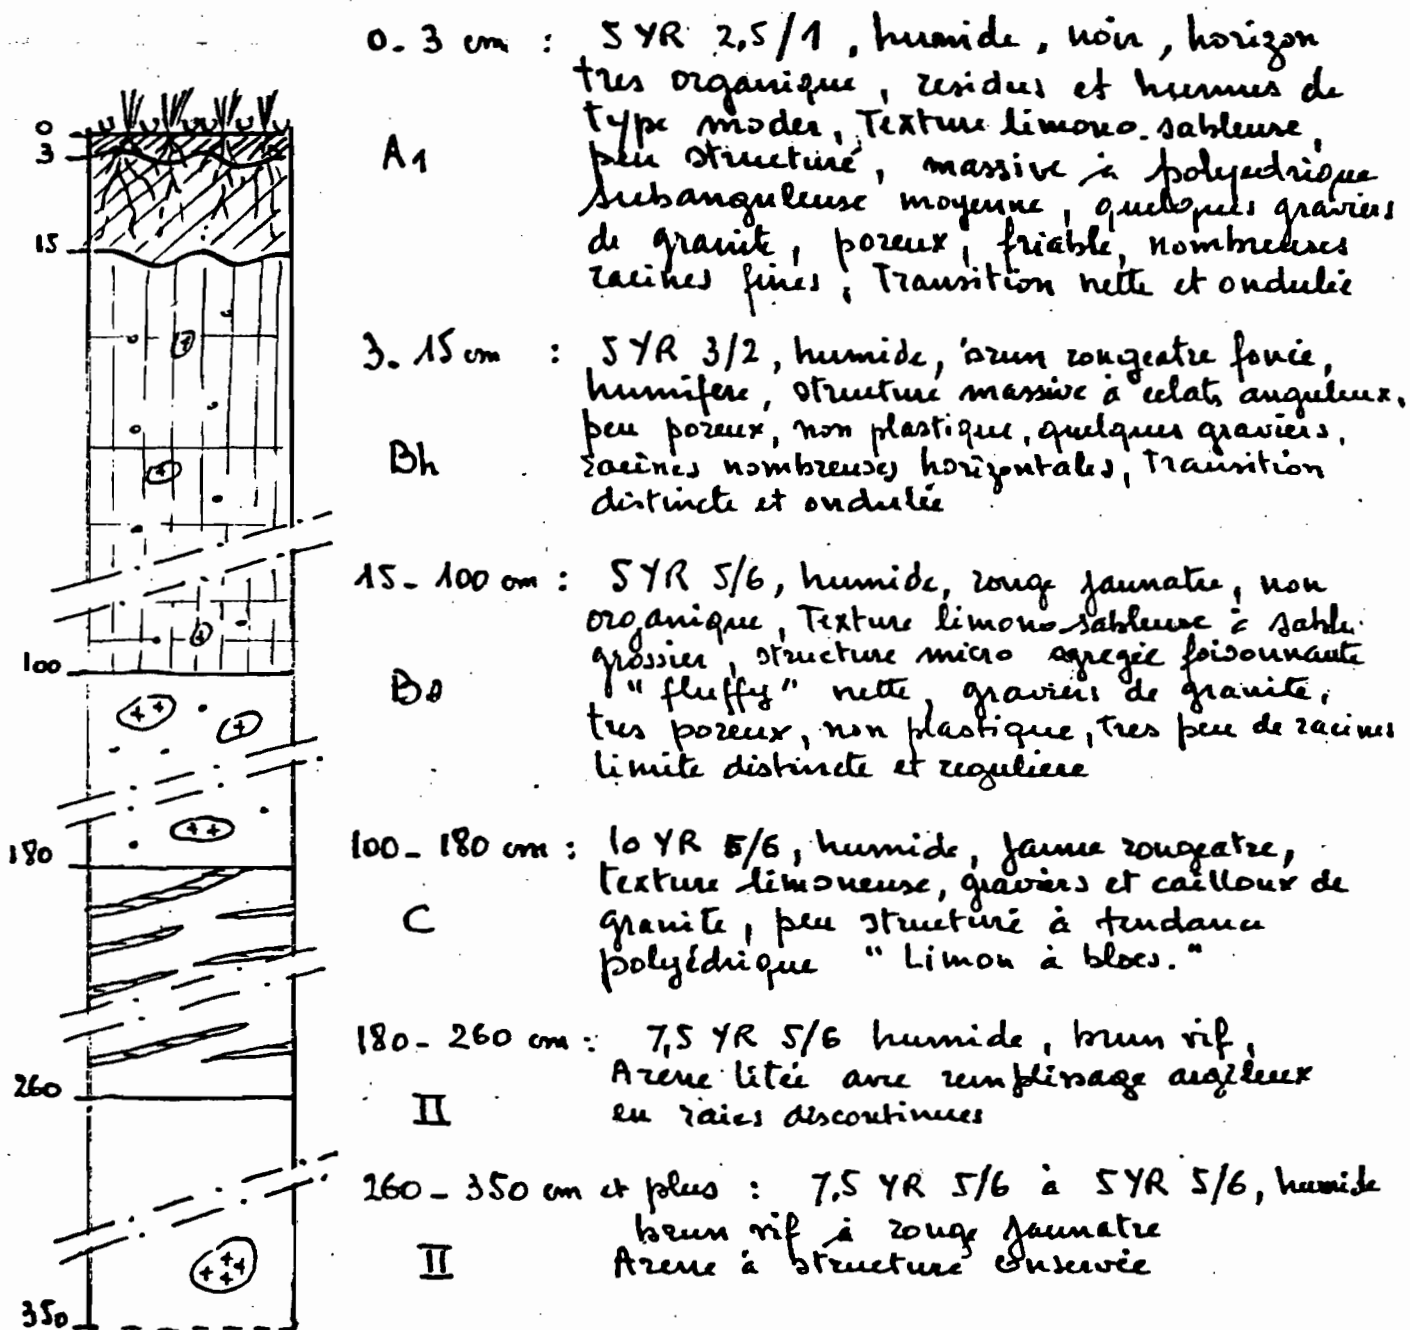 0. 3 cm : 5 YR 2,5/1, humide, noir, horizon
tres organique, residus et humus de
type moder, Texture limono-sableuse,
0
3
A1
peu structuré, massive à polyedrique
subanguleuse moyenne, quelques graviers
15
de granite, poreux, friable, nombreuses
racines fines, Transition nette et ondulée
3. 15 cm : 5 YR 3/2, humide, brun rougeatre foncé,
humifere, structure massive à eclats anguleux,
peu poreux, non plastique, quelques graviers,
Bh
racines nombreuses horizontales, Transition
distincte et ondulée
15- 100 cm : 5 YR 5/6, humide, rouge jaunatre, non
organique, Texture limono-sableuse à sable
grossier, structure micro agregée foisonnante
100
Bs
"fluffy" nette, graviers de granite,
tres poreux, non plastique, tres peu de racines
limite distincte et reguliere
180
100- 180 cm : 10 YR 5/6, humide, jaune rougeatre,
texture limoneuse, graviers et cailloux de
C
granite, peu structuré à tendance
polyédrique "Limon à blocs."
180- 260 cm : 7,5 YR 5/6 humide, brun vif,
260
Arene litée avec remplissage argileux
II
en raies discontinues
260- 350 cm et plus : 7,5 YR 5/6 à 5 YR 5/6, humide
brun vif à rouge jaunatre
II
Arene à structure conservée
350